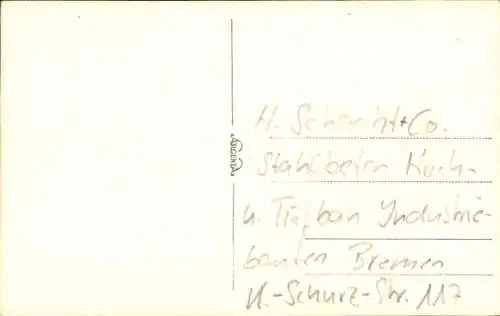 ARGENTA
H. Schmidt+Co.
Stahlbeton Hoch-
u. Tiefbau Industrie-
bauten Bremen
H.-Schurz-Str. 117